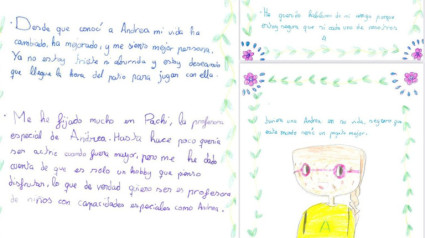 · Desde que conocí a Andrea mi vida ha
cambiado, ha mejorado, y me siento mejor persona.
Ya no estoy triste o aburrida y estoy deseando
que llegue la hora del patio para jugar con ella.
· Me he fijado mucho en Pachi, la profesora
especial de Andrea. Hasta hace poco quería
ser actriz cuando fuera mayor, pero me he dado
cuenta de que es solo un hobby que pienso
disfrutar, lo que de verdad quiero ser es profesora
de niños con capacidades especiales como Andrea.
· He querido hablaros de mi amiga porque
estoy segura que si cada uno de vosotros
tuviera una Andrea en su vida, seguro que
este mundo sería un poquito mejor.